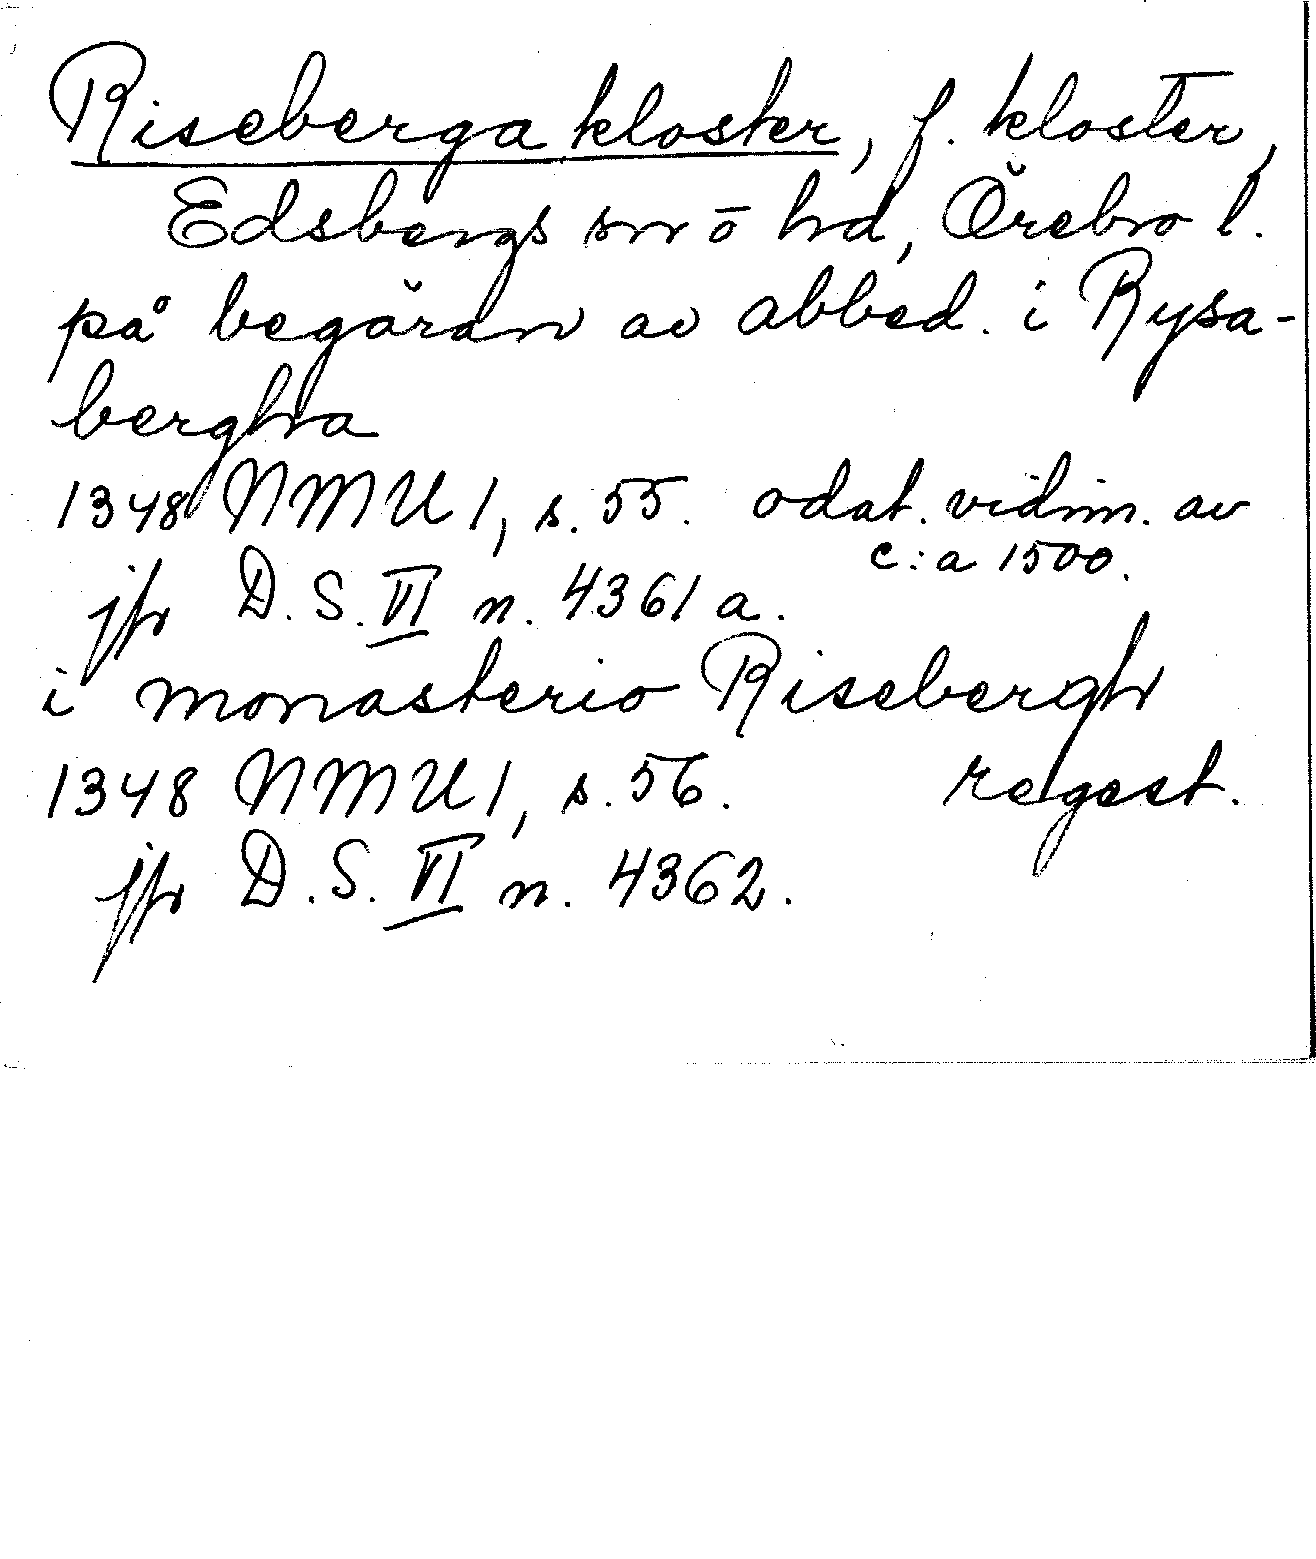 Riseberga kloster, f. kloster,
Edsbergs sn o hd, Örebro l.
på begäran av abbed. i Rysa-
bergha
1348 NMU 1, s. 55. odat. vidim. av
c:a 1500.
jfr D.S. VI n. 4361 a.
i monasterio Risebergh
1348 NMU 1, s. 56. regest.
jfr D.S. VI n. 4362.